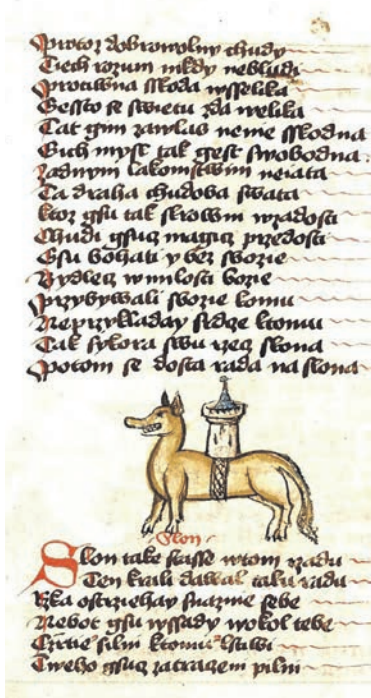 Protoz dobrowolny chudy
Tiech rozum nikdy nebludi
Protiwna sskoda wsselika
Gessto se swietu zda welika
Tat gim zawlas neme sskodna
Gich mysl tak gest swobodna
zadnym lakomstwim neiata
Ta draha chudoba swata
ktoz gsu tak skrowni wradosti
Chudi gsucz magicz przedosti
Gsu bohati y bez sworzie
Bydlecz wmilosti bozie
przybywali sborzie komu
Neprzikladay srdcze ktomu
Tak sykora swu rzecz skona
Potom se dosta rada na slona
Slon
Slon take stasse wtom rzadu
Ten krali dawal taku radu
Rka ostrziehay snaznie sebe
Nebot gsu wssady wokol tebe
Czrtie silni ktomu lstiwi
Tweho gsucz zatraczeni pilni